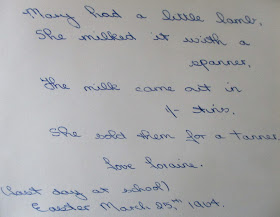 Mary had a little lamb,
She milked it with a
spanner,
The milk came out in
1/- tins,
She sold them for a tanner.
love Loraine.
(Last day at school)
Easter March 25th, 1964.